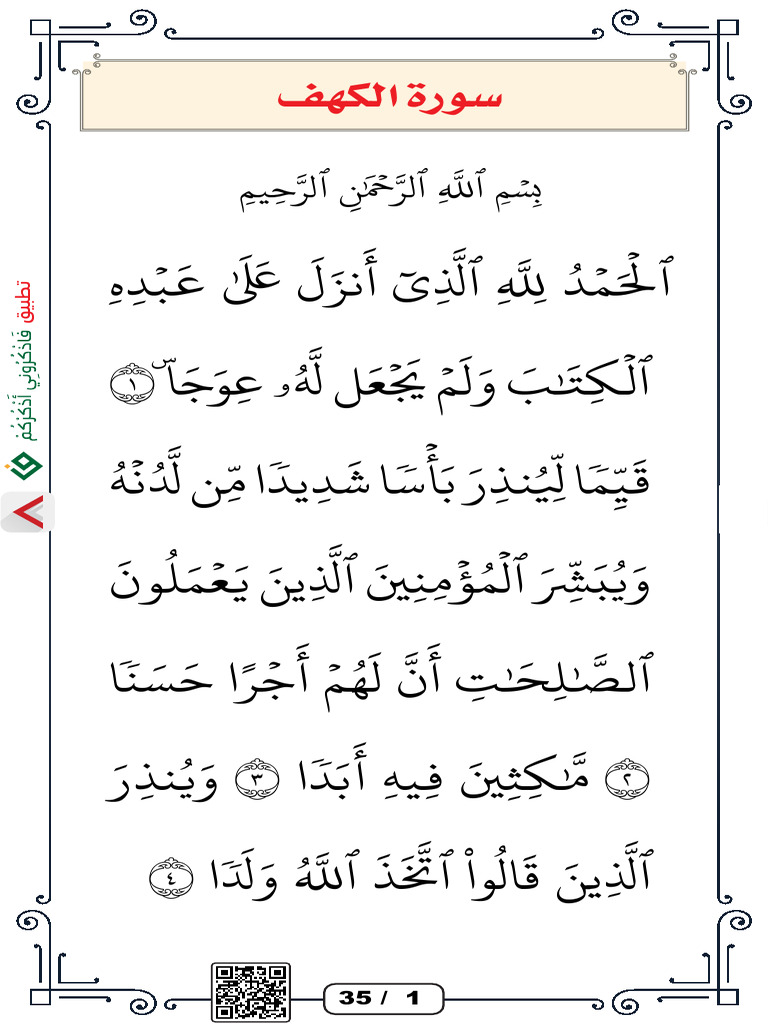 سورة الكهف
بِسۡمِ ٱللَّهِ ٱلرَّحۡمَٰنِ ٱلرَّحِيمِ
ٱلۡحَمۡدُ لِلَّهِ ٱلَّذِيٓ أَنزَلَ عَلَىٰ عَبۡدِهِ
ٱلۡكِتَٰبَ وَلَمۡ يَجۡعَل لَّهُۥ عِوَجَاۜ ١
قَيِّمٗا لِّيُنذِرَ بَأۡسٗا شَدِيدٗا مِّن لَّدُنۡهُ
وَيُبَشِّرَ ٱلۡمُؤۡمِنِينَ ٱلَّذِينَ يَعۡمَلُونَ
ٱلصَّٰلِحَٰتِ أَنَّ لَهُمۡ أَجۡرًا حَسَنٗا
٢ مَّٰكِثِينَ فِيهِ أَبَدٗا ٣ وَيُنذِرَ
ٱلَّذِينَ قَالُواْ ٱتَّخَذَ ٱللَّهُ وَلَدٗا ٤
تطبيق فَاذْكُرُونِي أَذْكُرْكُمْ
35 / 1